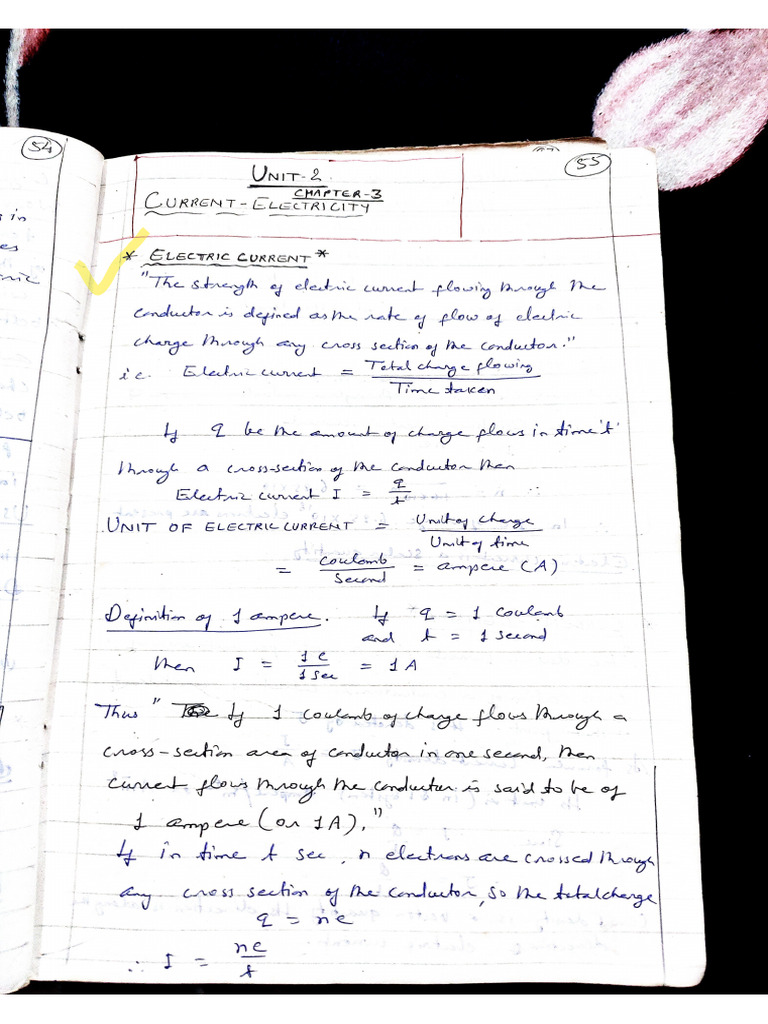 54
55
UNIT-2
CHAPTER-3
CURRENT-ELECTRICITY
* ELECTRIC CURRENT *
"The strength of electric current flowing through the
conductor is defined as the rate of flow of electric
charge through any cross section of the conductor."
i.e. Electric current = Total charge flowing / Time taken
If q be the amount of charge flows in time 't'
through a cross-section of the conductor then
Electric current I = q/t
UNIT OF ELECTRIC CURRENT = Unit of charge / Unit of time
= Coulomb / Second = ampere (A)
Definition of 1 ampere. If q = 1 coulomb
and t = 1 second
then I = 1 C / 1 Sec = 1 A
Thus " If 1 coulomb of charge flows through a
cross-section area of conductor in one second, then
current flows through the conductor is said to be of
1 ampere (or 1A)."
If in time t sec, n electrons are crossed through
any cross section of the conductor, so the total charge
q = ne
∴ I = ne/t